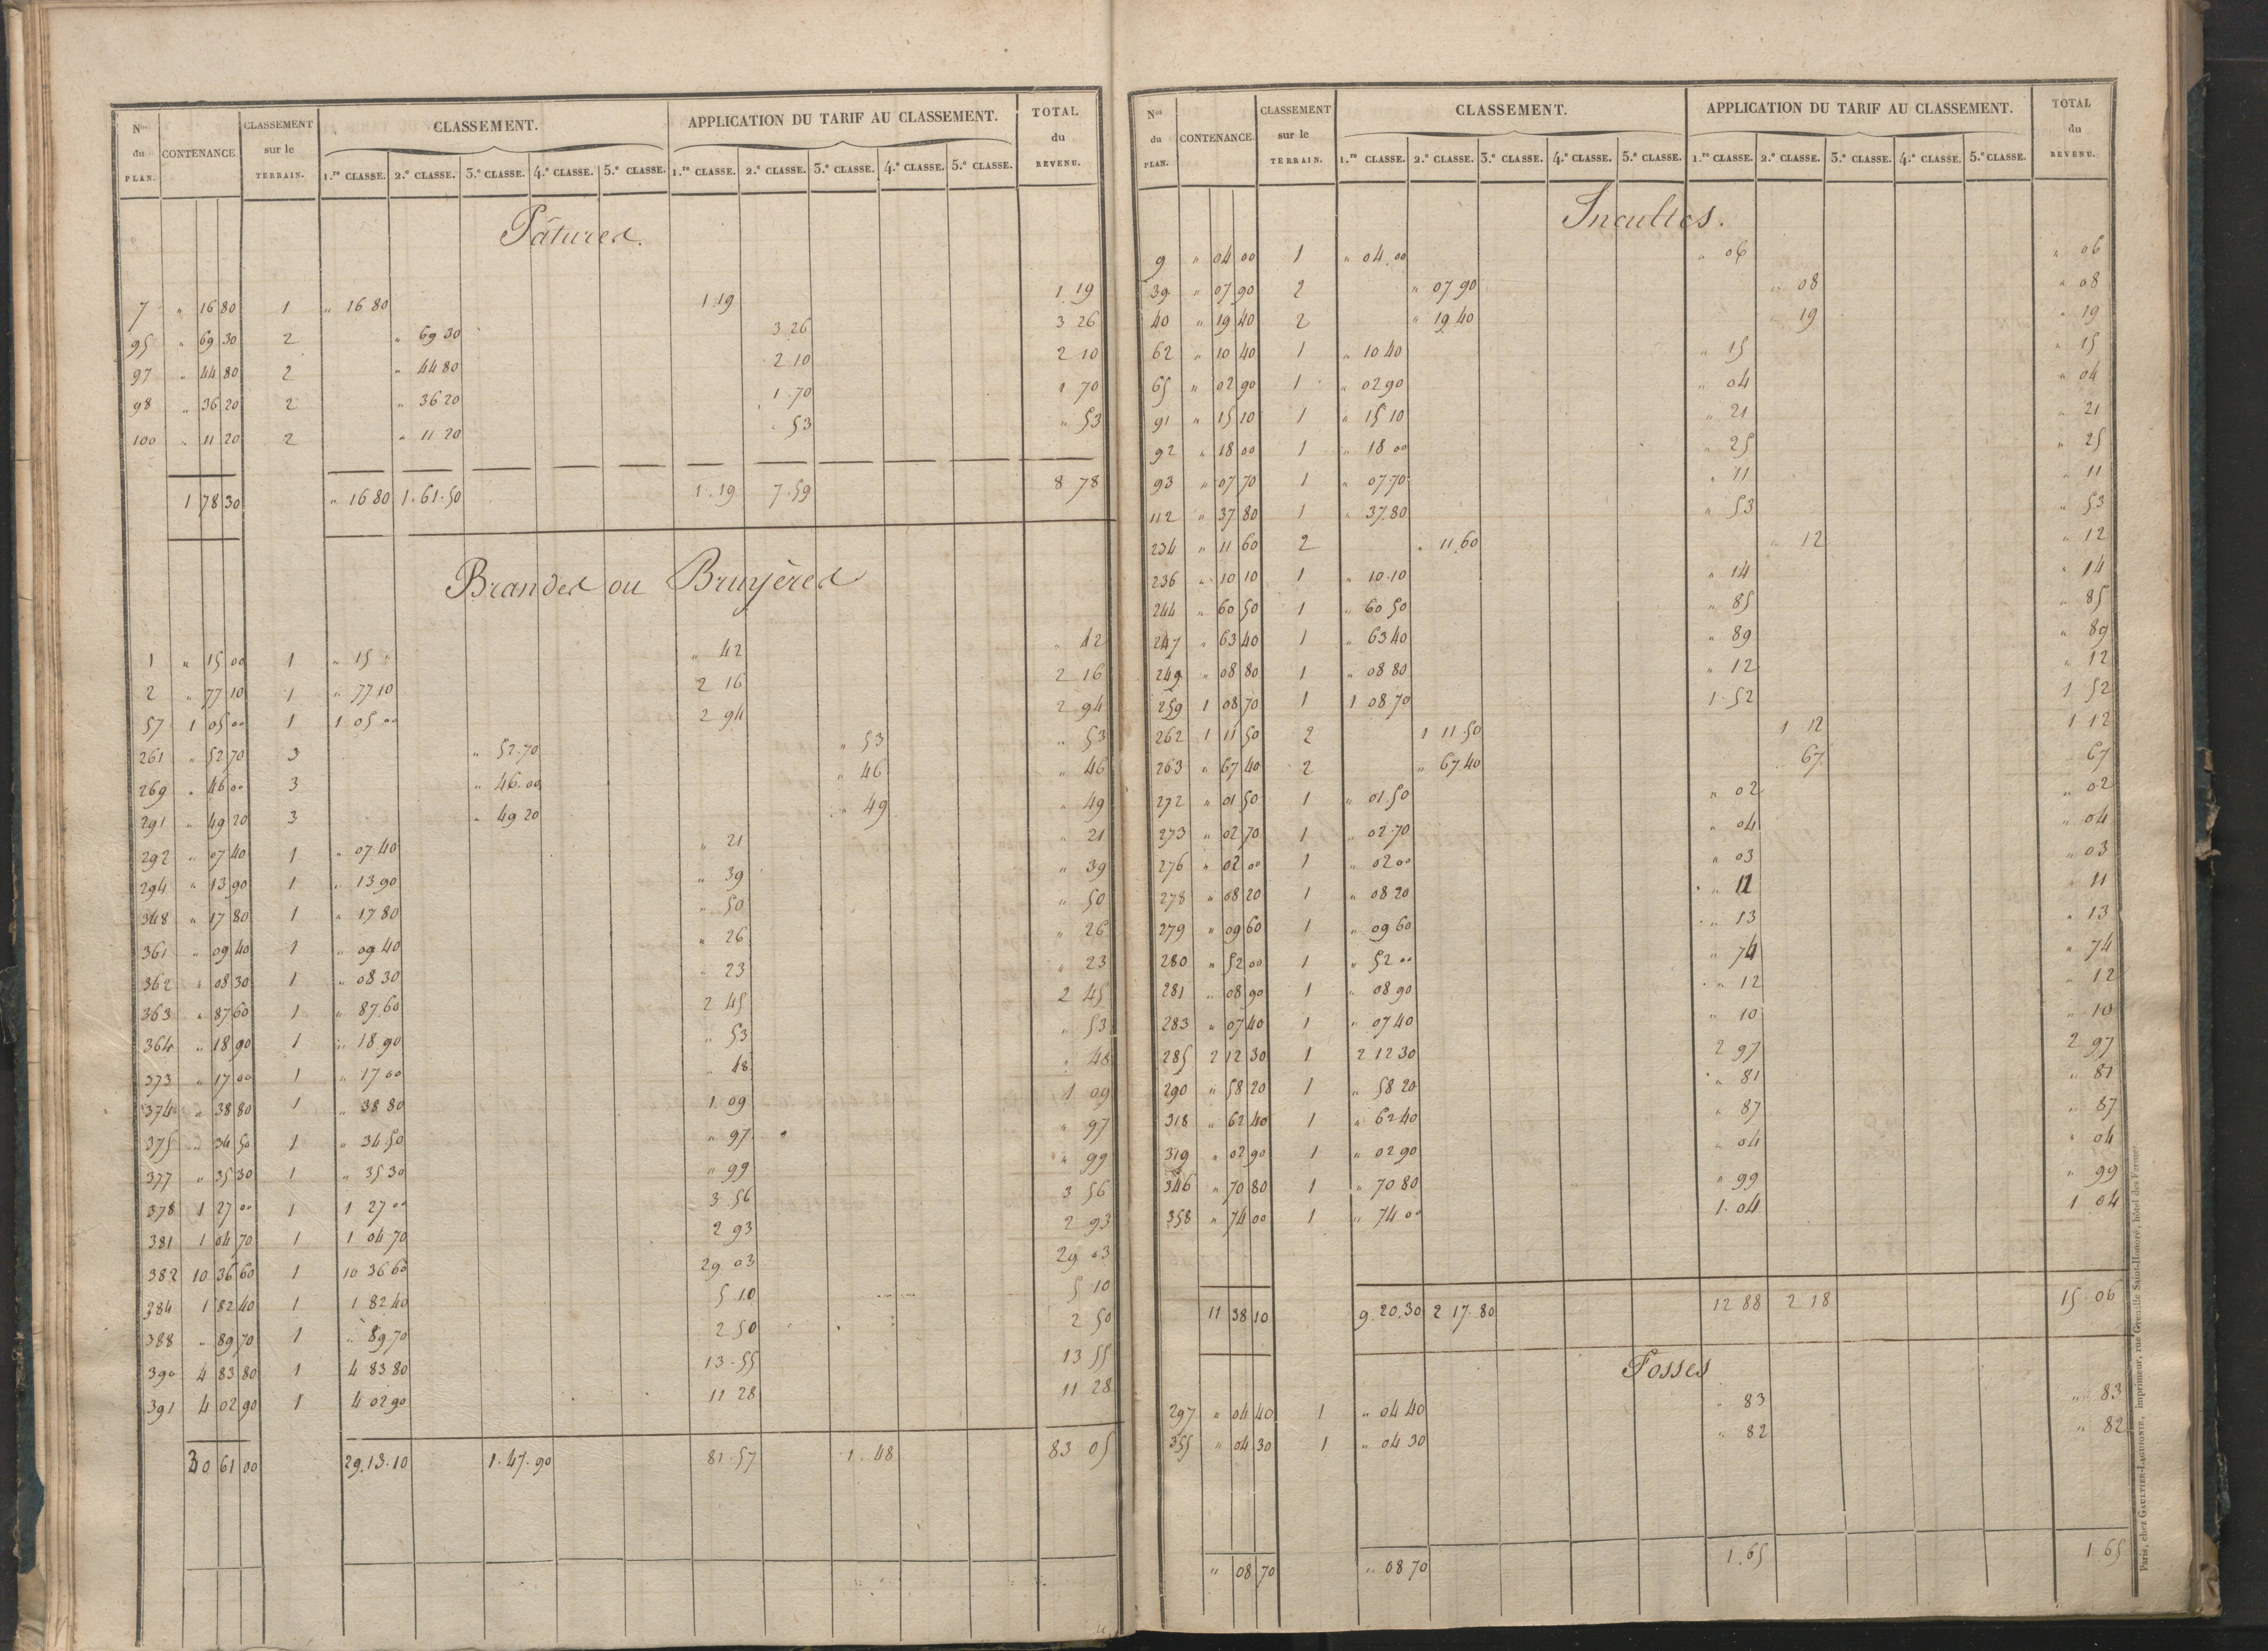 Nos du PLAN. CONTENANCE. CLASSEMENT sur le TERRAIN. CLASSEMENT. APPLICATION DU TARIF AU CLASSEMENT. TOTAL du REVENU.
1.re CLASSE. 2.e CLASSE. 3.e CLASSE. 4.e CLASSE. 5.e CLASSE. 1.re CLASSE. 2.e CLASSE. 3.e CLASSE. 4.e CLASSE. 5.e CLASSE.
Pâtures.
7 " 16 80 1 " 16 80 1.19 1 19
95 " 69 30 2 " 69 30 3 26 3 26
97 " 44 80 2 " 44 80 2 10 2 10
98 " 36 20 2 " 36 20 1.70 1 70
100 " 11 20 2 " 11 20 " 53 " 53
1 78 30 " 16 80 1.61.50 1.19 7.59 8 78
Brandes ou Bruyères
1 " 15 00 1 " 15 " " 42 " 42
2 " 77 10 1 " 77 10 2 16 2 16
57 1 05 00 1 1 05 00 2 94 2 94
261 " 52 70 3 " 52.70 " 53 " 53
269 " 46 00 3 " 46.00 " 46 " 46
291 " 49 20 3 " 49 20 " 49 " 49
292 " 07 40 1 " 07.40 " 21 " 21
294 " 13 90 1 " 13 90 " 39 " 39
348 " 17 80 1 " 17 80 " 50 " 50
361 " 09 40 1 " 09 40 " 26 " 26
362 " 08 30 1 " 08 30 " 23 " 23
363 " 87 60 1 " 87.60 2 45 2 45
364 " 18 90 1 " 18.90 " 53 " 53
373 " 17 00 1 " 17 00 " 48 " 48
374 " 38 80 1 " 38 80 1.09 1 09
375 " 34 50 1 " 34 50 " 97 " 97
377 " 35 30 1 " 35 30 " 99 " 99
378 1 27 00 1 1 27 00 3 56 3 56
381 1 04 70 1 1 04 70 2 93 2 93
382 10 36 60 1 10 36 60 29 03 29 03
384 1 82 40 1 1 82 40 5 10 5 10
388 " 89 70 1 " 89 70 2 50 2 50
390 4 83 80 1 4 83 80 13.55 13 55
391 4 02 90 1 4 02 90 11 28 11 28
30 61 00 29.13.10 1.47.90 81.57 1.48 83 05
Nos du PLAN. CONTENANCE. CLASSEMENT sur le TERRAIN. CLASSEMENT. APPLICATION DU TARIF AU CLASSEMENT. TOTAL du REVENU.
1.re CLASSE. 2.e CLASSE. 3.e CLASSE. 4.e CLASSE. 5.e CLASSE. 1.re CLASSE. 2.e CLASSE. 3.e CLASSE. 4.e CLASSE. 5.e CLASSE.
Incultes.
9 " 04 00 1 " 04.00 " 06 " 06
39 " 07 90 2 " 07 90 " 08 " 08
40 " 19 40 2 " 19 40 " 19 " 19
62 " 10 40 1 " 10 40 " 15 " 15
65 " 02 90 1 " 02 90 " 04 " 04
91 " 15 10 1 " 15 10 " 21 " 21
92 " 18 00 1 " 18 00 " 25 " 25
93 " 07 70 1 " 07.70 " 11 " 11
112 " 37 80 1 " 37.80 " 53 " 53
234 " 11 60 2 " 11.60 " 12 " 12
236 " 10 10 1 " 10.10 " 14 " 14
244 " 60 50 1 " 60 50 " 85 " 85
247 " 63 40 1 " 63 40 " 89 " 89
249 " 08 80 1 " 08 80 " 12 " 12
259 1 08 70 1 1 08 70 1.52 1 52
262 1 11 50 2 1 11.50 1 12 1 12
263 " 67 40 2 " 67.40 " 67 " 67
272 " 01 50 1 " 01.50 " 02 " 02
273 " 02 70 1 " 02.70 " 04 " 04
276 " 02 00 1 " 02 00 " 03 " 03
278 " 08 20 1 " 08 20 " 11 " 11
279 " 09 60 1 " 09 60 " 13 " 13
280 " 52 00 1 " 52 00 " 74 " 74
281 " 08 90 1 " 08 90 " 12 " 12
283 " 07 40 1 " 07 40 " 10 " 10
285 2 12 30 1 2 12 30 2 97 2 97
290 " 58 20 1 " 58 20 " 81 " 81
318 " 62 40 1 " 62 40 " 87 " 87
319 " 02 90 1 " 02 90 " 04 " 04
346 " 70 80 1 " 70 80 " 99 " 99
358 " 74 00 1 " 74 00 1.04 1 04
11 38 10 9.20.30 2 17.80 12 88 2 18 15 06
Fosses
297 " 04 40 1 " 04 40 " 83 " 83
355 " 04 30 1 " 04 30 " 82 " 82
" 08 70 " 08 70 1.65 1 65
Paris, chez GAULTIER-LAGUIONIE, imprimeur, rue Grenelle Saint-Honoré, hôtel des Fermes